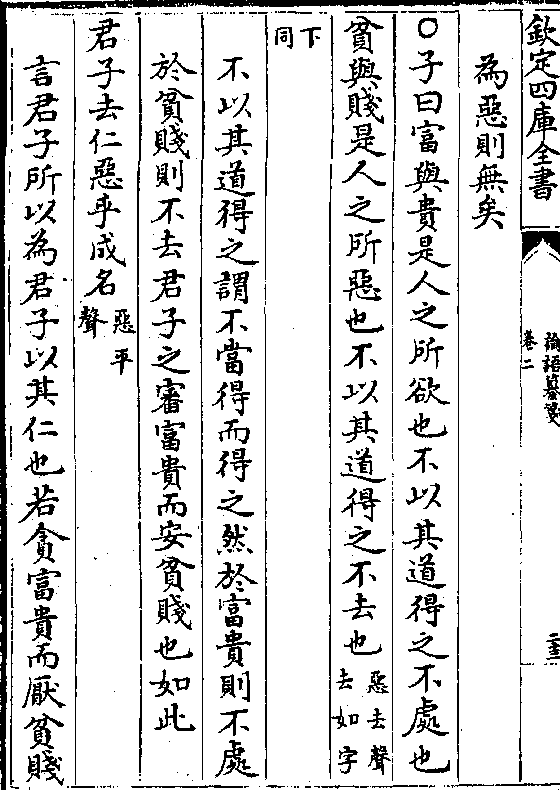 欽定四庫全書
論語纂箋
卷二
為惡則無矣
○子曰富與貴是人之所欲也不以其道得之不處也
貧與賤是人之所惡也不以其道得之不去也惡去聲去如字
下同
不以其道得之謂不當得而得之然於富貴則不處
於貧賤則不去君子之審富貴而安貧賤也如此
君子去仁惡乎成名惡平聲
言君子所以為君子以其仁也若貪富貴而厭貧賤